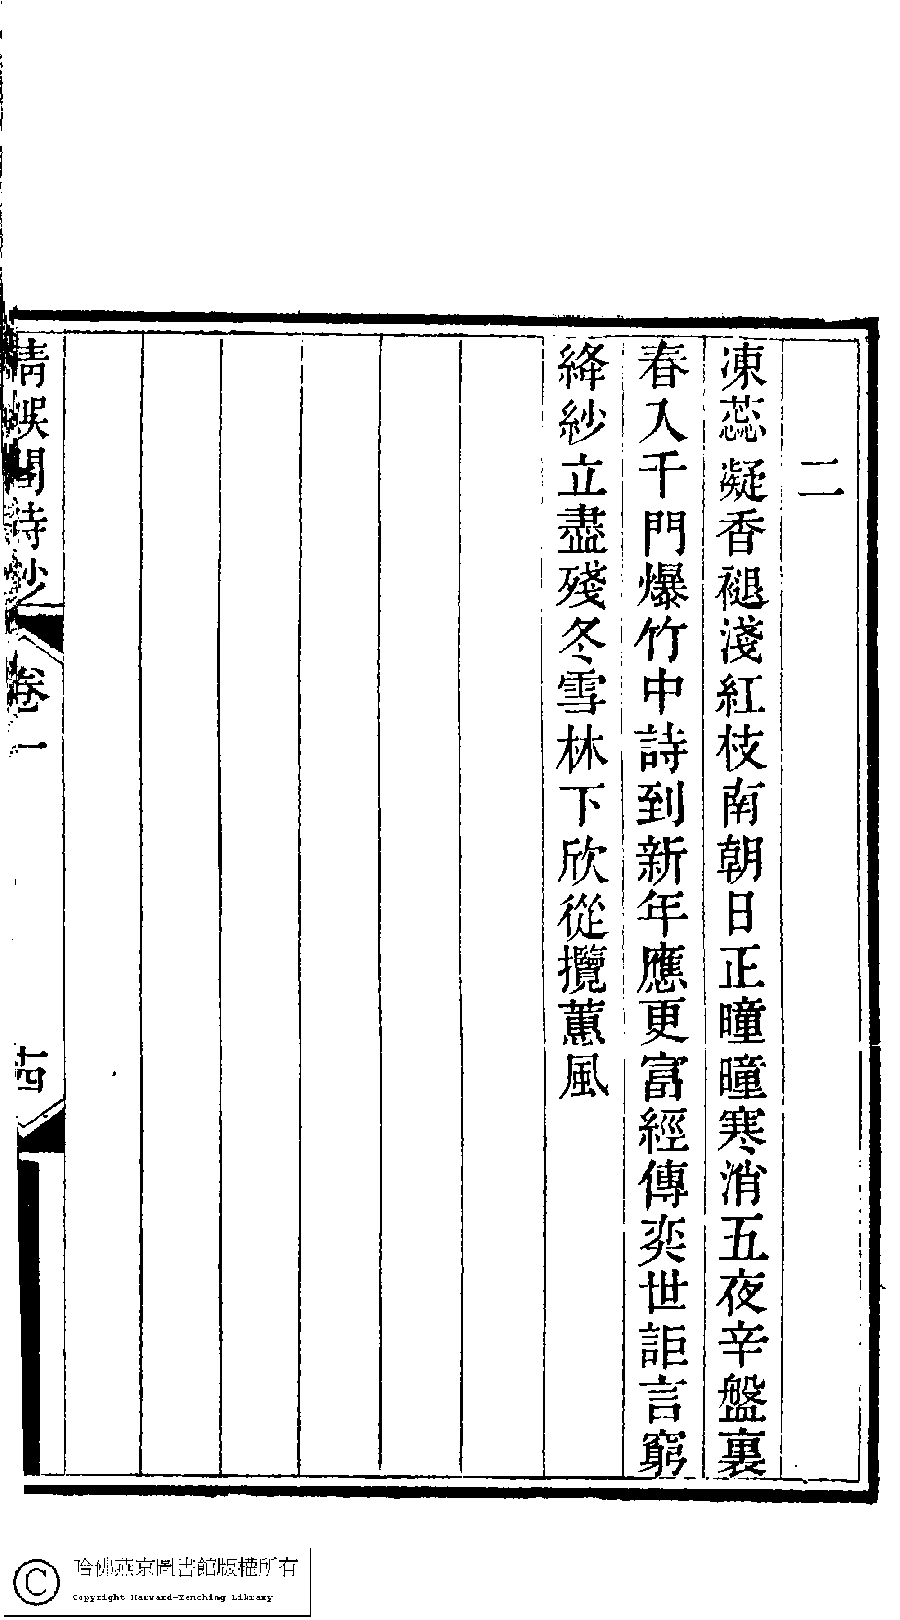 二
凍蕊凝香褪淺紅枝南朝日正曈曈寒消五夜辛盤裏
春入千門爆竹中詩到新年應更富經傳奕世詎言窮
絳紗立盡殘冬雪林下欣從攬蕙風
卷一
十四
哈佛燕京圖書館版權所有
Copyright Harvard-Yenching Library